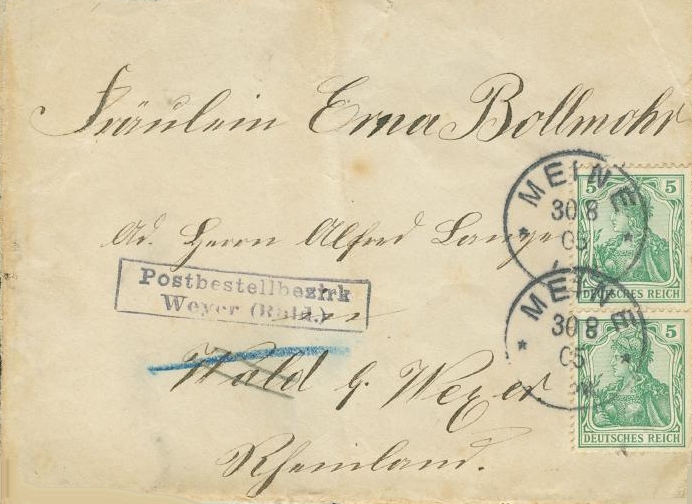 Fräulein Erna Bollmohr
Ad. Herrn Alfred Lange
Postbestellbezirk
Weyer (Rhld.)
Wald b. Weyer.
Rheinland.
MEINE
30 8
05
5 5
DEUTSCHES REICH
MEINE
30 8
05
5
DEUTSCHES REICH